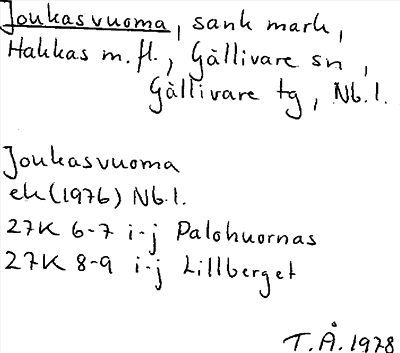 Joukasvuoma, sank mark,
Hakkas m.fl., Gällivare sn,
Gällivare tg, Nb.l.
Joukasvuoma
ek (1976) Nb.l.
27K 6-7 i-j Palohuornas
27K 8-9 i-j Lillberget
T.Å. 1978